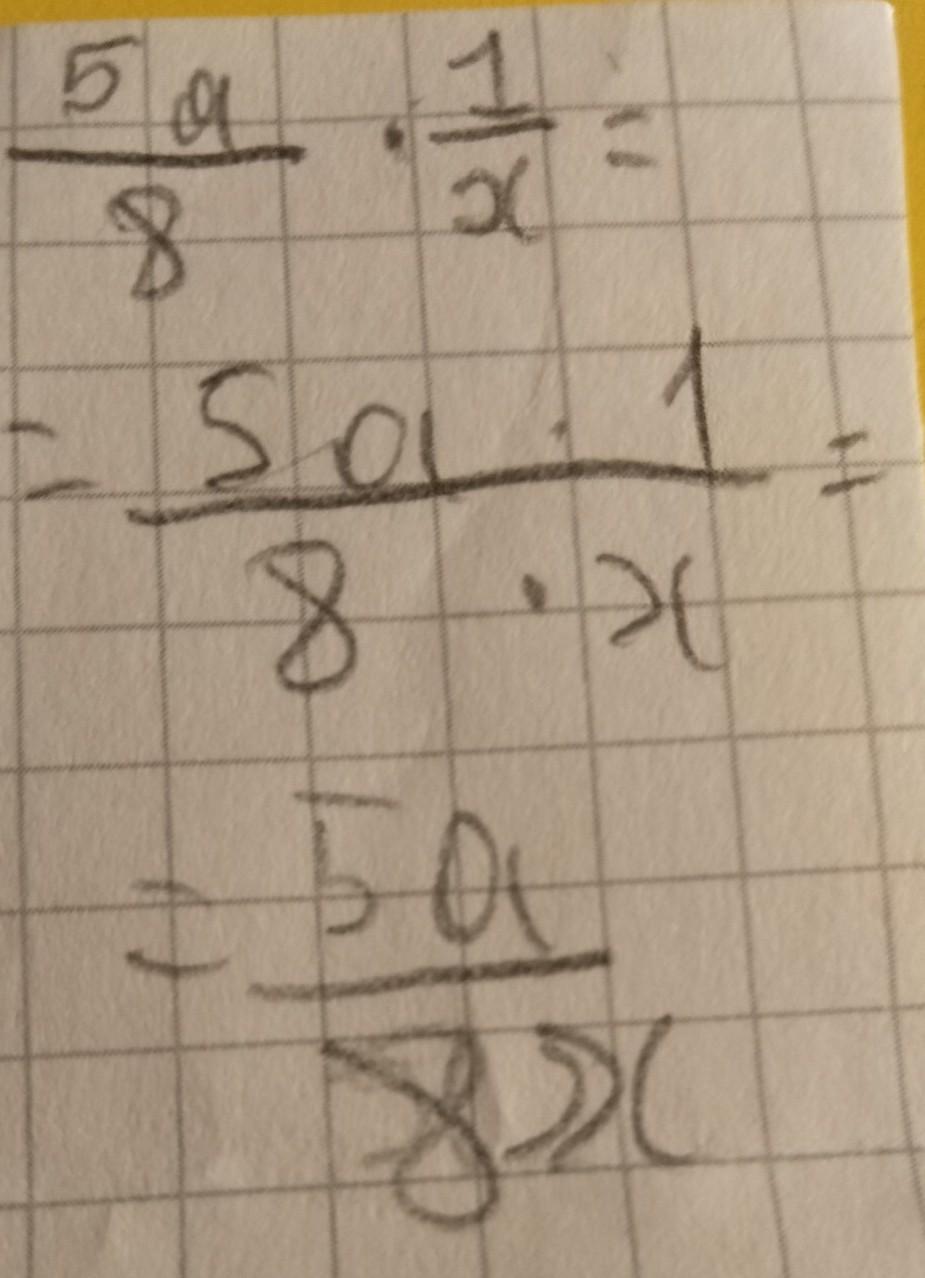 5a/8 · 1/x =
= 5a · 1/8 · x =
= 5a/8x